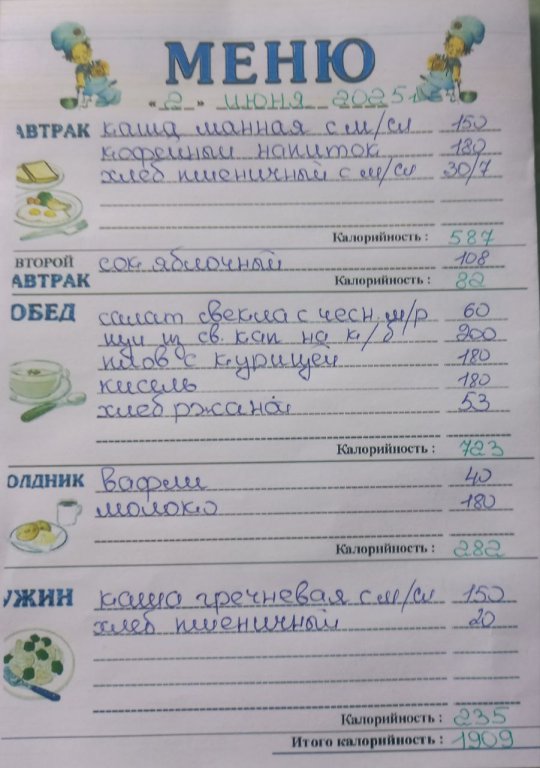 МЕНЮ
«2» июня 2025г
АВТРАК каша манная с м/сл 150
кофейный напиток 180
хлеб пшеничный с м/сл 30/7
Калорийность : 587
ВТОРОЙ сок яблочный 108
АВТРАК Калорийность : 82
ОБЕД салат свекла с чесн. м/р 60
щи из св. кап на к/б 200
плов с курицей 180
кисель 180
хлеб ржаной 53
Калорийность : 723
ОЛДНИК вафли 40
молоко 180
Калорийность : 282
УЖИН каша гречневая с м/сл 150
хлеб пшеничный 20
Калорийность : 235
Итого калорийность : 1909